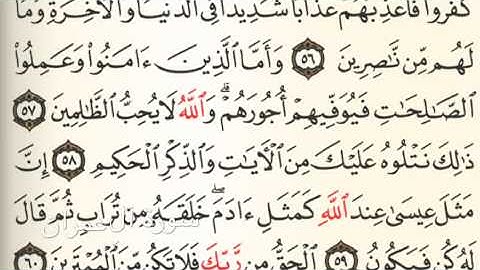 كَفَرُوا۟ فَأُعَذِّبُهُمْ عَذَابًا شَدِيدًا فِى ٱلدُّنْيَا وَٱلْءَاخِرَةِ وَمَا
لَهُم مِّن نَّـٰصِرِينَ ٥٦ وَأَمَّا ٱلَّذِينَ ءَامَنُوا۟ وَعَمِلُوا۟
ٱلصَّـٰلِحَـٰتِ فَيُوَفِّيهِمْ أُجُورَهُمْ ۗ وَٱللَّهُ لَا يُحِبُّ ٱلظَّـٰلِمِينَ ٥٧
ذَٰلِكَ نَتْلُوهُ عَلَيْكَ مِنَ ٱلْءَايَـٰتِ وَٱلذِّكْرِ ٱلْحَكِيمِ ٥٨ إِنَّ
مَثَلَ عِيسَىٰ عِندَ ٱللَّهِ كَمَثَلِ ءَادَمَ ۖ خَلَقَهُۥ مِن تُرَابٍ ثُمَّ قَالَ
سورة آل عمران
لَهُۥ كُن فَيَكُونُ ٥٩ ٱلْحَقُّ مِن رَّبِّكَ فَلَا تَكُن مِّنَ ٱلْمُمْتَرِينَ ٦٠